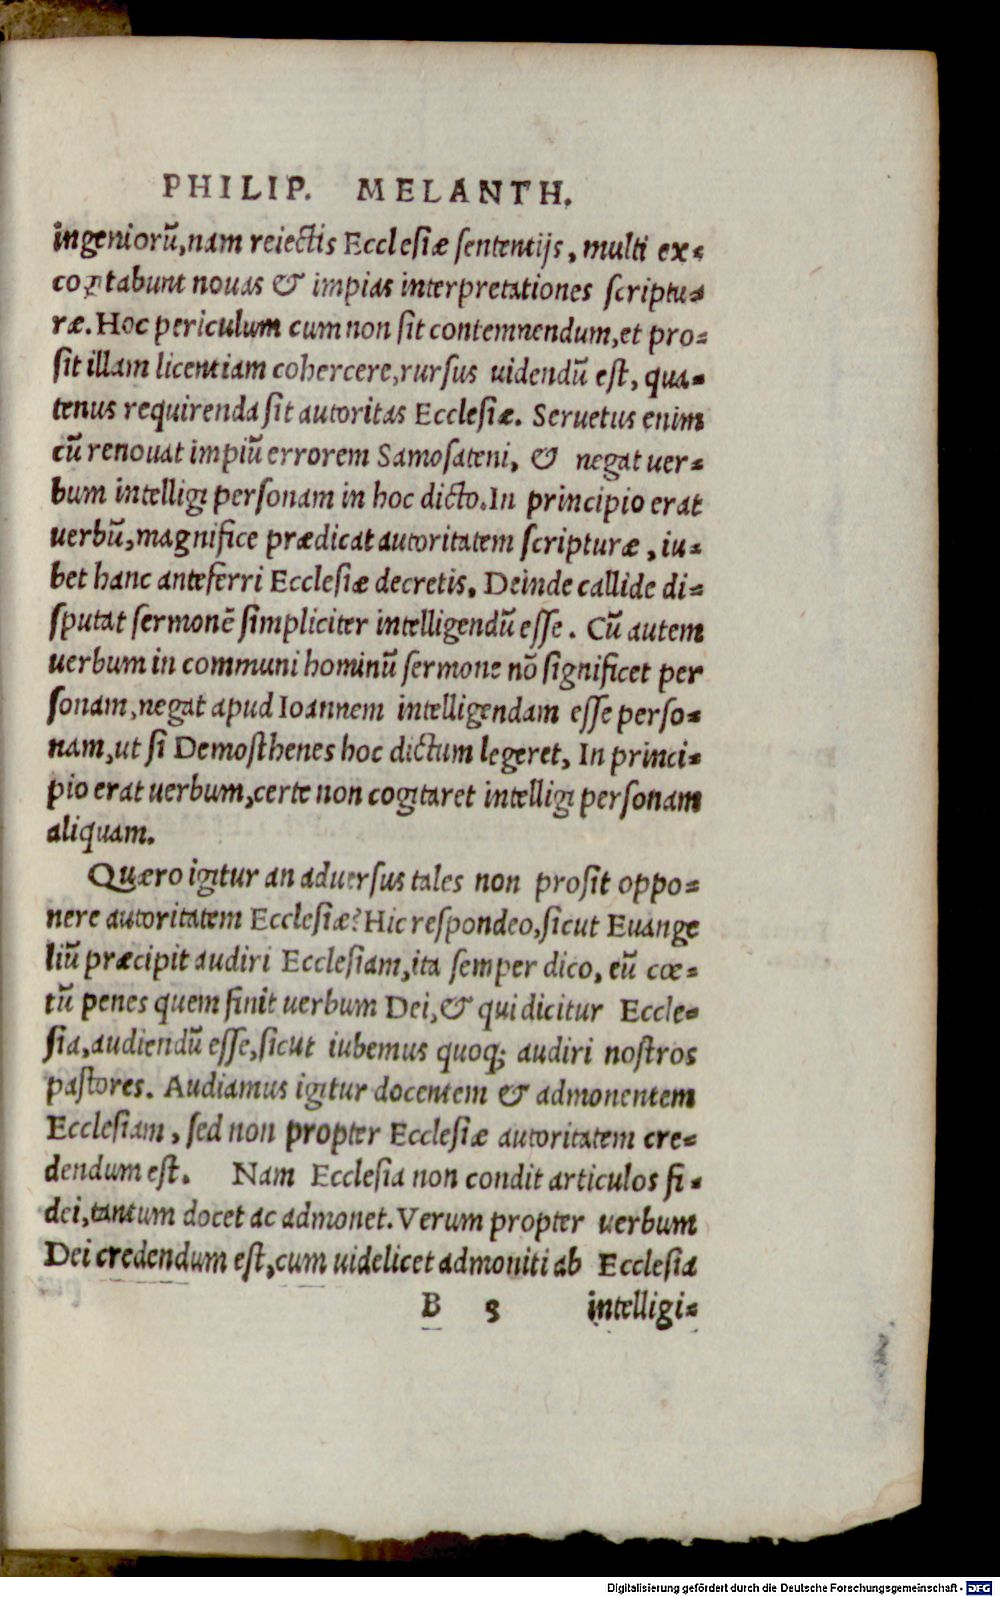 PHILIP. MELANTH.
ingeniorũ,nam reiectis Ecclesiæ sententijs, multi ex-
cogitabunt nouas & impias interpretationes scriptu-
ræ. Hoc periculum cum non sit contemnendum,et pro-
sit illam licentiam cohercere,rursus uidendũ est, qua-
tenus requirenda sit autoritas Ecclesiæ. Seruetus enim
cũ renouat impiũ errorem Samosateni, & negat uer-
bum intelligi personam in hoc dicto.In principio erat
uerbũ,magnifice prædicat autoritatem scripturæ, iu-
bet hanc anteferri Ecclesiæ decretis. Deinde callide di-
sputat sermonẽ simpliciter intelligendũ esse. Cũ autem
uerbum in communi hominũ sermone nõ significet per
sonam,negat apud Ioannem intelligendam esse perso-
nam,ut si Demosthenes hoc dictum legeret, In princi-
pio erat uerbum,certe non cogitaret intelligi personam
aliquam.
Quæro igitur an aduersus tales non prosit oppo-
nere autoritatem Ecclesiæ? Hic respondeo,sicut Euange
liũ præcipit audiri Ecclesiam,ita semper dico, eũ cœ-
tũ penes quem sinit uerbum Dei,& qui dicitur Eccle-
sia,audiendũ esse,sicut iubemus quoq; audiri nostros
pastores. Audiamus igitur docentem & admonentem
Ecclesiam, sed non propter Ecclesiæ autoritatem cre-
dendum est. Nam Ecclesia non condit articulos fi-
dei,tantum docet ac admonet. Verum propter uerbum
Dei credendum est,cum uidelicet admoniti ab Ecclesia
B 3 intelligi-
Digitalisierung gefördert durch die Deutsche Forschungsgemeinschaft - DFG